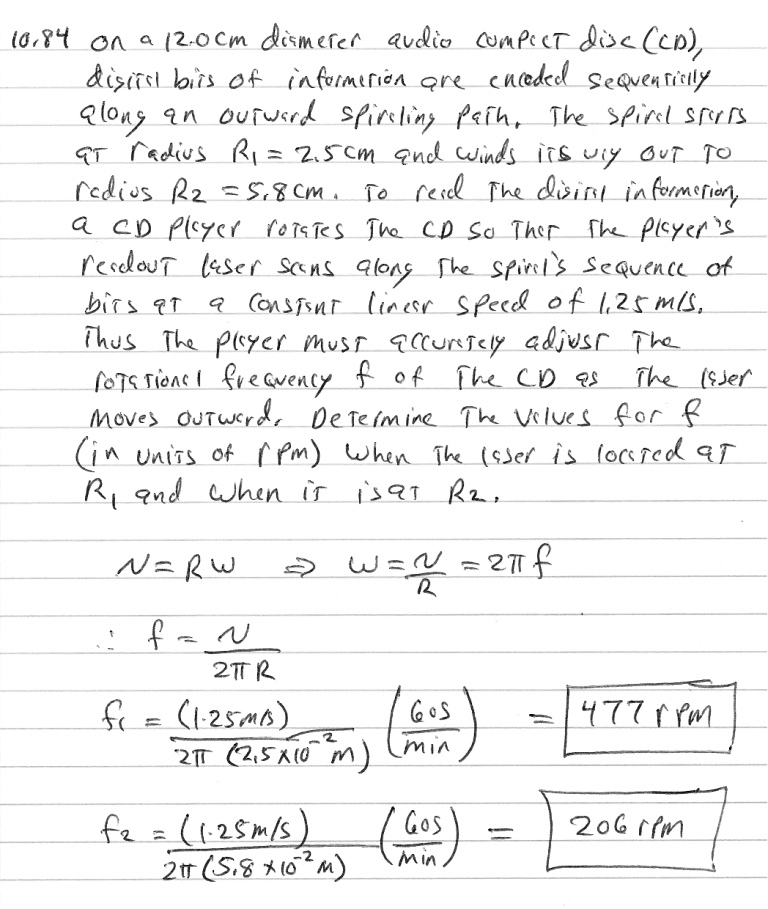 10.84 On a 12.0 cm diameter audio compact disc (CD),
digital bits of information are encoded sequentially
along an outward spiraling path. The spiral starts
at radius R₁ = 2.5 cm and winds its way out to
radius R₂ = 5.8 cm. To read the digital information,
a CD player rotates the CD so that the player's
readout laser scans along the spiral's sequence of
bits at a constant linear speed of 1.25 m/s.
Thus the player must accurately adjust the
rotational frequency f of the CD as the laser
moves outward. Determine the values for f
(in units of rpm) when the laser is located at
R₁ and when it is at R₂.
v = Rω ⇒ ω = v/R = 2πf
∴ f = v/2πR
f₁ = (1.25 m/s)/2π (2.5×10⁻² m) (60s/min) = 477 rpm
f₂ = (1.25 m/s)/2π (5.8×10⁻² m) (60s/min) = 206 rpm